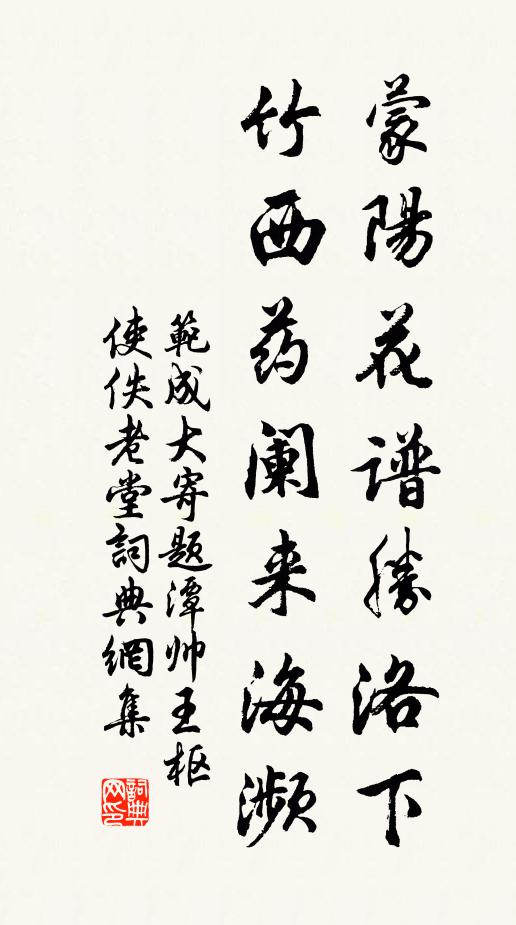 蒙陽花谱勝洛下
竹西药阑来海濒
範成大寄題潭帅王枢
使佚老堂詞典網集
詞典
网印